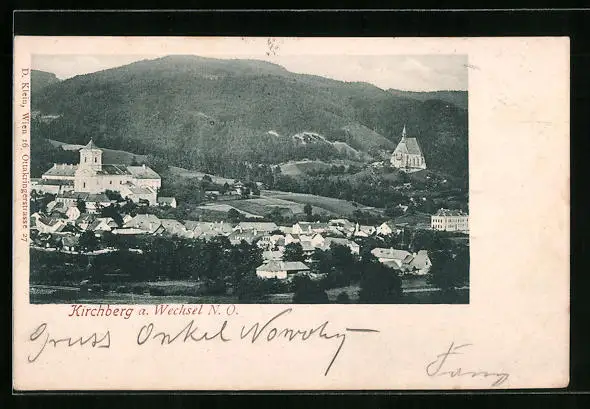 D. Klein, Wien 16 Ottakringerstrasse 27
Kirchberg a. Wechsel N. O.
Gruss Onkel Nowohy